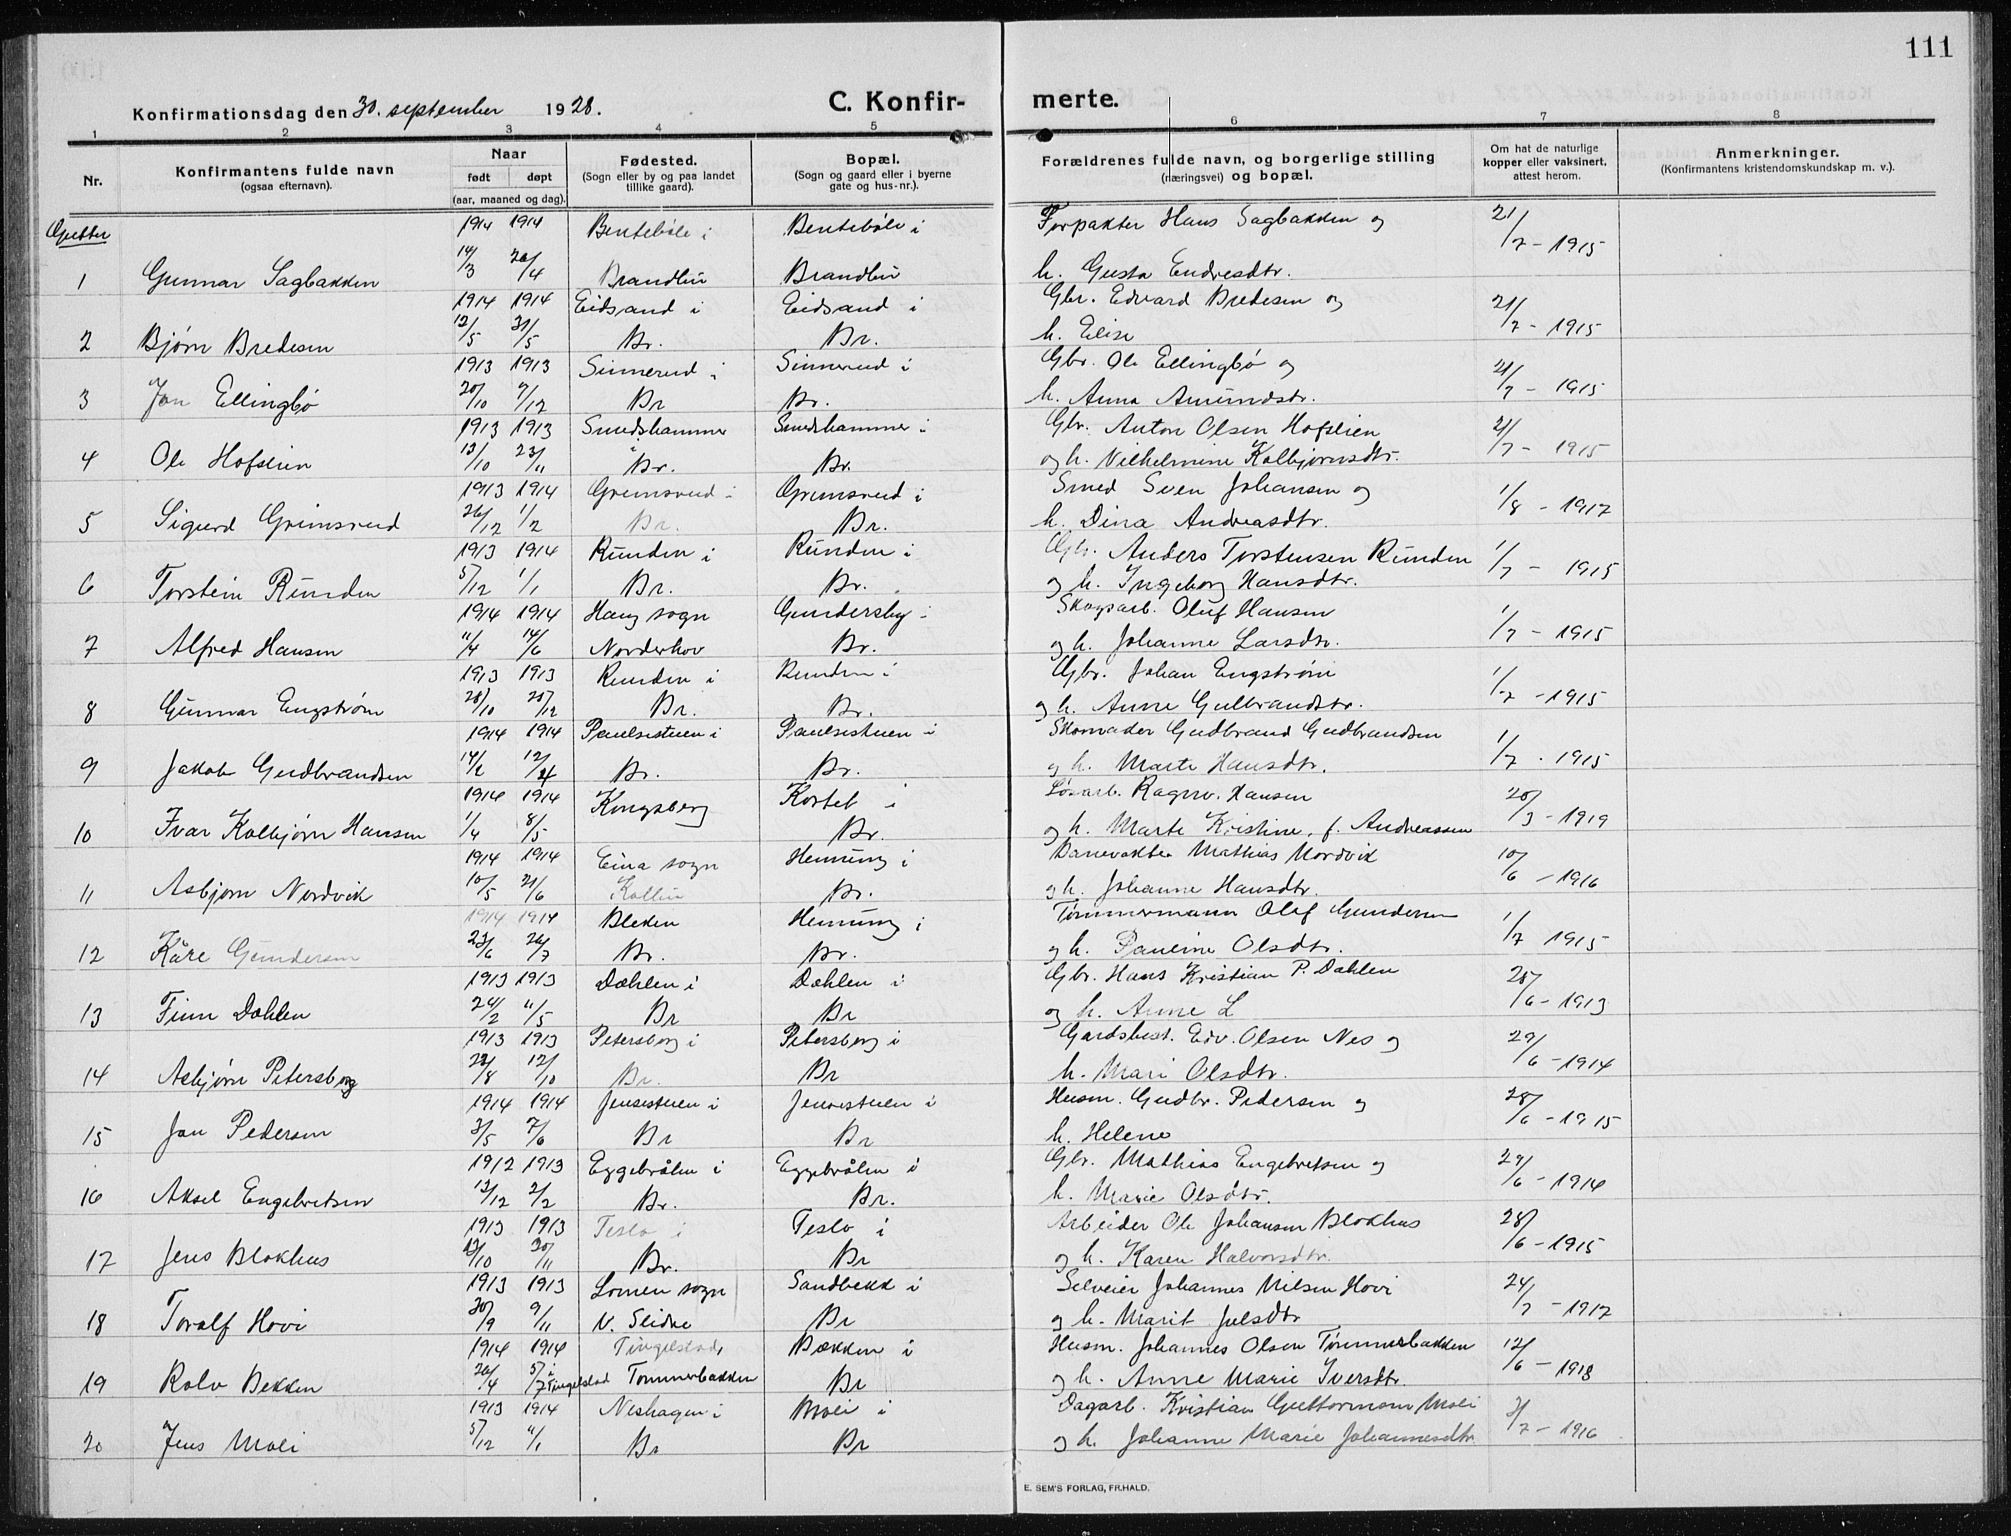 111
Konfirmationsdag den 30. september 1928.
C. Konfir-
merte.
1 2 3 4 5 6 7 8
Nr.
Konfirmantens fulde navn
(ogsaa efternavn).
Naar
født døpt
(aar, maaned og dag).
Fødested.
(Sogn eller by og paa landet
tillike gaard).
Bopæl.
(Sogn og gaard eller i byerne
gate og hus-nr.).
Forældrenes fulde navn, og borgerlige stilling
(næringsvei) og bopæl.
Om hat de naturlige
kopper eller vaksinert,
attest herom.
Anmerkninger.
(Konfirmantens kristendomskundskap m. v.).
Gutter
1914 1914 Bentebøle i Bentebøle i Forpakter Hans Sagbakken og 21/7 - 1915
1 Gunnar Sagbakken 14/3 26/4 Brandbu Brandbu h. Gusta Endresdtr.
1914 1914 Eidsand i Eidsand i Gbr. Edvard Bredesen og 21/7 - 1915
2 Bjørn Bredesen 12/5 31/5 Br. Br. h. Elise
1913 1913 Sinnerud i Sinnerud i Gbr. Ole Ellingbø og 21/7 - 1915
3 Jon Ellingbø 20/10 7/12 Br Br. h. Anna Amundstr.
1913 1913 Smedshammer i Smedshammer i Gbr. Anton Olsen Hofslien 21/7 - 1915
4 Ole Hofslien 13/10 23/11 Br. Br. og h. Vilhelmine Kolbjørnsdtr.
1913 1914 Grimsrud i Grimsrud i Smed Sven Johansen og 1/8 - 1917
5 Sigurd Grimsrud 26/12 1/2 Br. Br. h. Dina Andreasdtr.
1913 1914 Runden i Runden i Gbr. Anders Torstensen Runden 1/7 - 1915
6 Torstein Runden 5/12 1/1 Br. Br. og h. Ingeborg Hansdtr.
1914 1914 Haug sogn Gundersby i Skogsarb. Oluf Hansen 1/7 - 1915
7 Alfred Hansen 11/4 14/6 Norderhov Br. og h. Johanne Larsdtr.
1913 1913 Runden i Runden i Gbr. Johan Engstrøm 1/7 - 1915
8 Gunnar Engstrøm 28/10 28/12 Br. Br. og h. Anne Gulbrandstr.
1914 1914 Paulsestuen i Paulsestuen i Skomaker Gudbrand Gudbrandsen 1/7 - 1915
9 Jakob Gudbrandsen 14/2 12/4 Br. Br. og h. Marte Hansdtr.
1914 1914 Kongsberg Kortel i Løsarb. Ragnv. Hansen 20/3 - 1919
10 Ivar Kolbjørn Hansen 1/4 8/5 Br. og h. Marte Kristine, f. Andreassen
1914 1914 Eina sogn Hennung i Banevokter Mathias Nordvik 10/6 - 1916
11 Asbjørn Nordvik 10/5 21/6 Kolbu Br. og h. Johanne Hansdtr.
1914 1914 Bleken Hennung i Tømmermann Olaf Gundersen 1/7 1915
12 Kåre Gundersen 23/6 26/7 Br. Br. og h. Pauline Olsdtr.
1913 1913 Dæhlen i Dæhlen i Gbr. Hans Kristian P. Dæhlen 28/6 - 1913
13 Finn Dæhlen 24/2 11/5 Br Br og h. Anne L
1913 1913 Petersborg i Petersborg i Gardsbest. Edv. Olsen Nes og 29/6 - 1914
14 Asbjørn Petersborg 22/8 12/10 Br. Br h. Mari Olsdtr.
1914 1914 Jensestuen i Jensestuen i Husm. Gudbr. Pedersen og 28/6 - 1915
15 Jon Pedersen 3/5 7/6 Br Br h. Helene
1912 1913 Eggebråten i Eggebråten i Gbr. Mathias Engebretsen og 29/6 - 1914
16 Aksel Engebretsen 12/12 2/2 Br. Br. h. Marie Olsdtr.
1913 1913 Teslo i Teslo i Arbeider Ole Johansen Blokhus 28/6 - 1915
17 Jens Blokhus 12/10 30/11 Br. Br og h. Karen Halvorsdtr.
1913 1913 Lomen sogn Sandbekk i Selveier Johannes Nilsen Hovi 24/7 - 1917
18 Toralf Hovi 30/9 9/11 V. Slidre Br og h. Marit Julsdtr
1914 1914 Tingelstad Bækken i Husm. Johannes Olsen Tømmerbakken 12/6 - 1918
19 Rolv Bekken 26/4 5/7 i Tingelstad Tømmerbakken Br og h. Anne Marie Iversdtr.
1913 1914 Neshagen i Moli i Dagarb. Kristian Guttormsen Moli 3/7 - 1916
20 Jens Moli 5/12 11/1 Br Br og h. Johanne Marie Johannesdtr.
E. SEM'S FORLAG, FR.HALD.